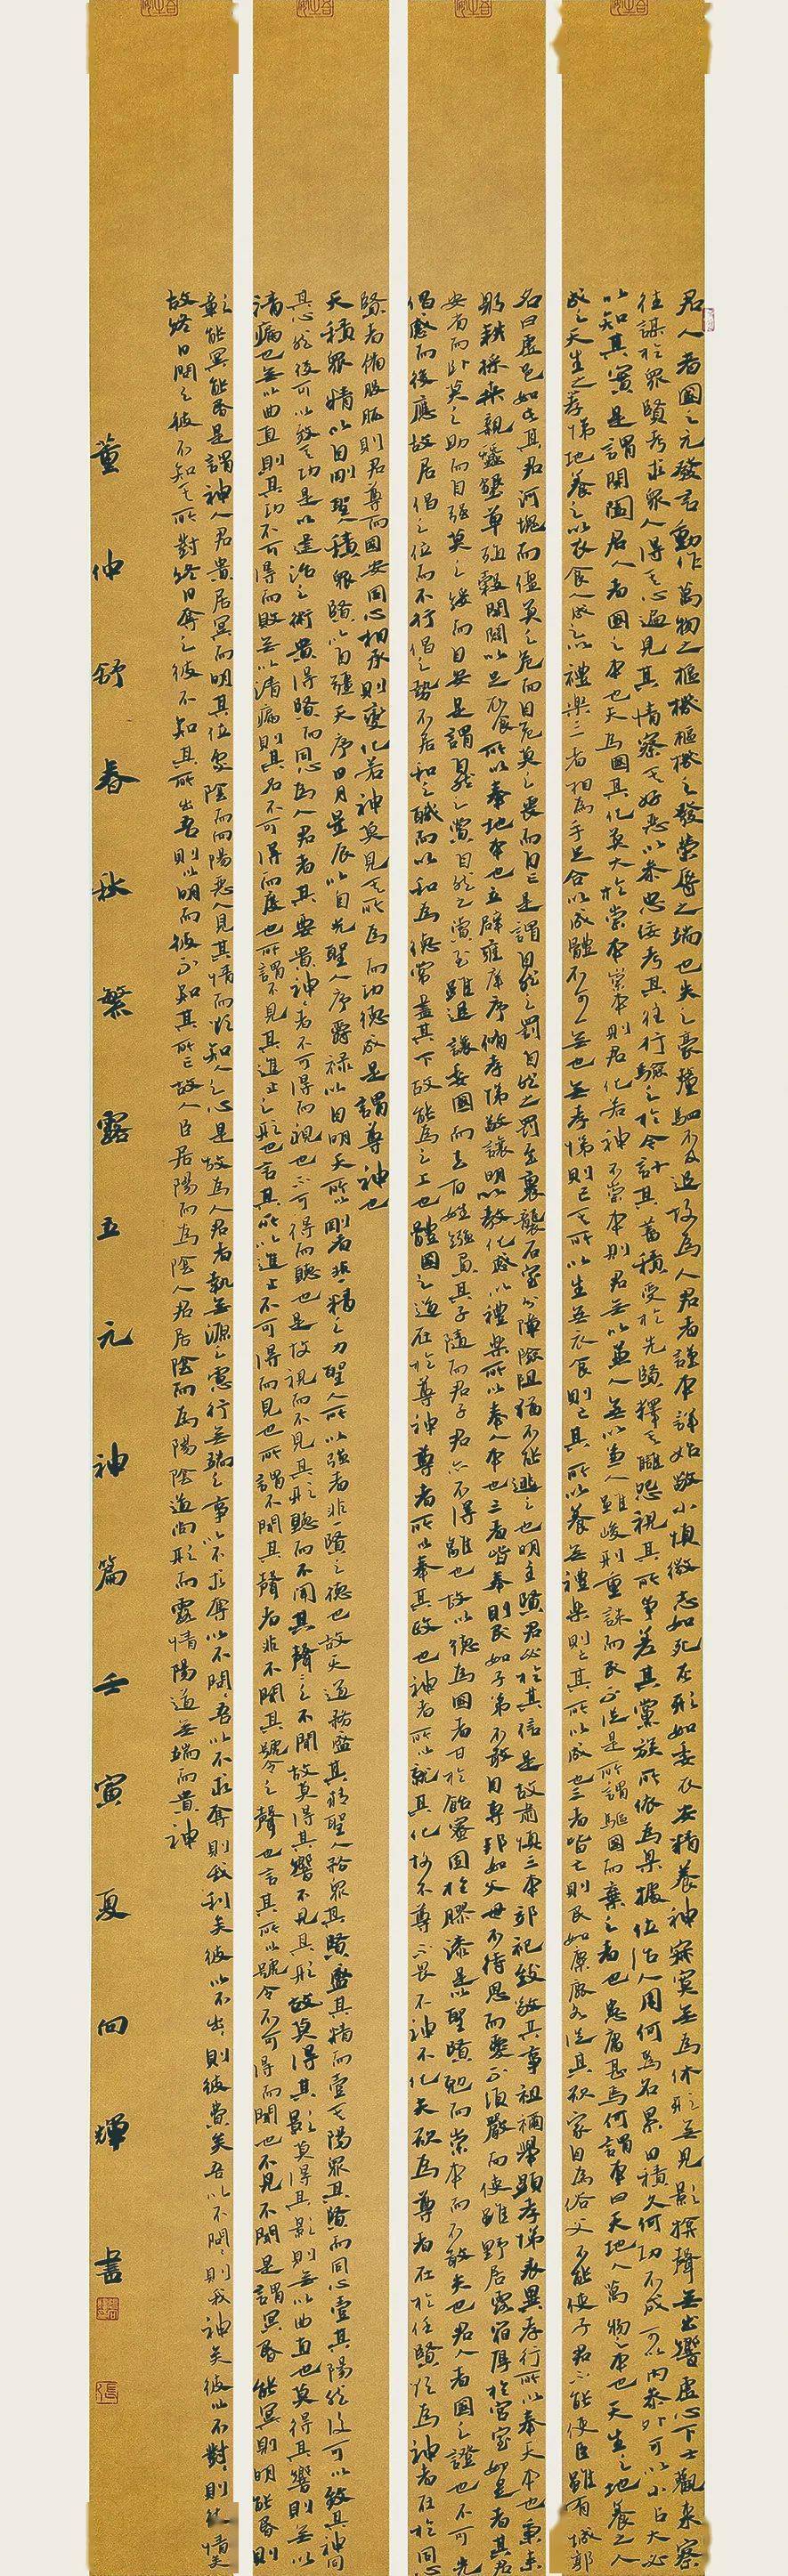 君人者國之元發言動作萬物之樞機樞機之發榮辱之端也失之豪釐駟不及追故為人君者謹本詳始敬小慎微志如死灰形如委衣安精養神寂寞無為休形無見影揜聲無出響虛心下士觀來察
往謀於眾賢考求眾人得其心遍見其情察其好惡以參忠佞考其往行驗之於今計其蓄積受於先賢釋其讎怨視其所爭差其黨族所依為臬據位治人用何為名累日積久何功不成可以內參外可以小占大必
以知其實是謂開闔君人者國之本也夫為國其化莫大於崇本崇本則君化若神不崇本則君無以兼人無以兼人雖峻刑重誅而民不從是所謂驅國而棄之者也患庸甚焉何謂本曰天地人萬物之本也天生之地養之人
成之天生之孝悌地養之以衣食人成之以禮樂三者相為手足合以成體不可一無也無孝悌則亡其所以生無衣食則亡其所以養無禮樂則亡其所以成也三者皆亡則民如麋鹿各從其欲家自為俗父不能使子君不能使臣雖有城郭
名曰虛邑如此其君枕塊而僵莫之危而自危莫之喪而自亡是謂自然之罰自然之罰至裹襲石室分障險阻猶不能逃之也明主賢君必於其信是故肅慎三本郊祀致敬共事祖禰舉顯孝悌表異孝行所以奉天本也秉耒
躬耕採桑親蠶墾草殖穀開闢以足衣食所以奉地本也立辟雍庠序修孝悌敬讓明以教化感以禮樂所以奉人本也三者皆奉則民如子弟不敢自專邦如父母不待恩而愛不須嚴而使雖野居露宿厚於宮室如是者其君
安枕而臥莫之助而自強莫之綏而自安是謂自然之賞自然之賞至雖退讓委國而去百姓襁負其子隨而君子君亦不得離也故以德為國者甘於飴蜜固於膠漆是以聖賢勉而崇本而不敢失也君人者國之證也不可先
倡感而後應故居倡之位而不行倡之勢不居和之職而以和為德常盡其下故能為之上也體國之道在於尊神尊者所以奉其政也神者所以就其化故不尊不畏不神不化夫欲為尊者在於任賢欲為神者在於同心
賢者備股肱則君尊而國安同心相承則變化若神莫見其所為而功德成是謂尊神也
天積眾精以自剛聖人積眾賢以自彊天序日月星辰以自光聖人序爵祿以自明天所以剛者非一精之力聖人所以強者非一賢之德也故天道務盛其精聖人務眾其賢盛其精而壹其陽眾其賢而同心壹其陽然後可以致其神同
其心然後可以致其功是以建治之術貴得賢而同心為人君者其要貴神神者不可得而視也不可得而聽也是故視而不見其形聽而不聞其聲聲之不聞故莫得其響不見其形故莫得其影莫得其影則無以曲直也莫得其響則無以
清濁也無以曲直則其功不可得而敗無以清濁則其名不可得而度也所謂不見其進止之形也言其所以進止不可得而見也所謂不聞其聲者非不聞其號令之聲也言其所以號令不可得而聞也不見不聞是謂冥昏能冥則明能昏則
彰能冥能昏是謂神人君貴居冥而明其位處陰而向陽惡人見其情而欲知人之心是故為人君者執無源之慮行無端之事以不求奪以不問問吾以不求奪則我利矣彼以不出出則彼費矣吾以不問問則我神矣彼以不對對則彼情矣
故終日問之彼不知其所對終日奪之彼不知其所出吾則以明而彼不知其所亡故人臣居陽而為陰人君居陰而為陽陰道尚形而露情陽道無端而貴神
董仲舒春秋繁露立元神篇壬寅夏向輝書